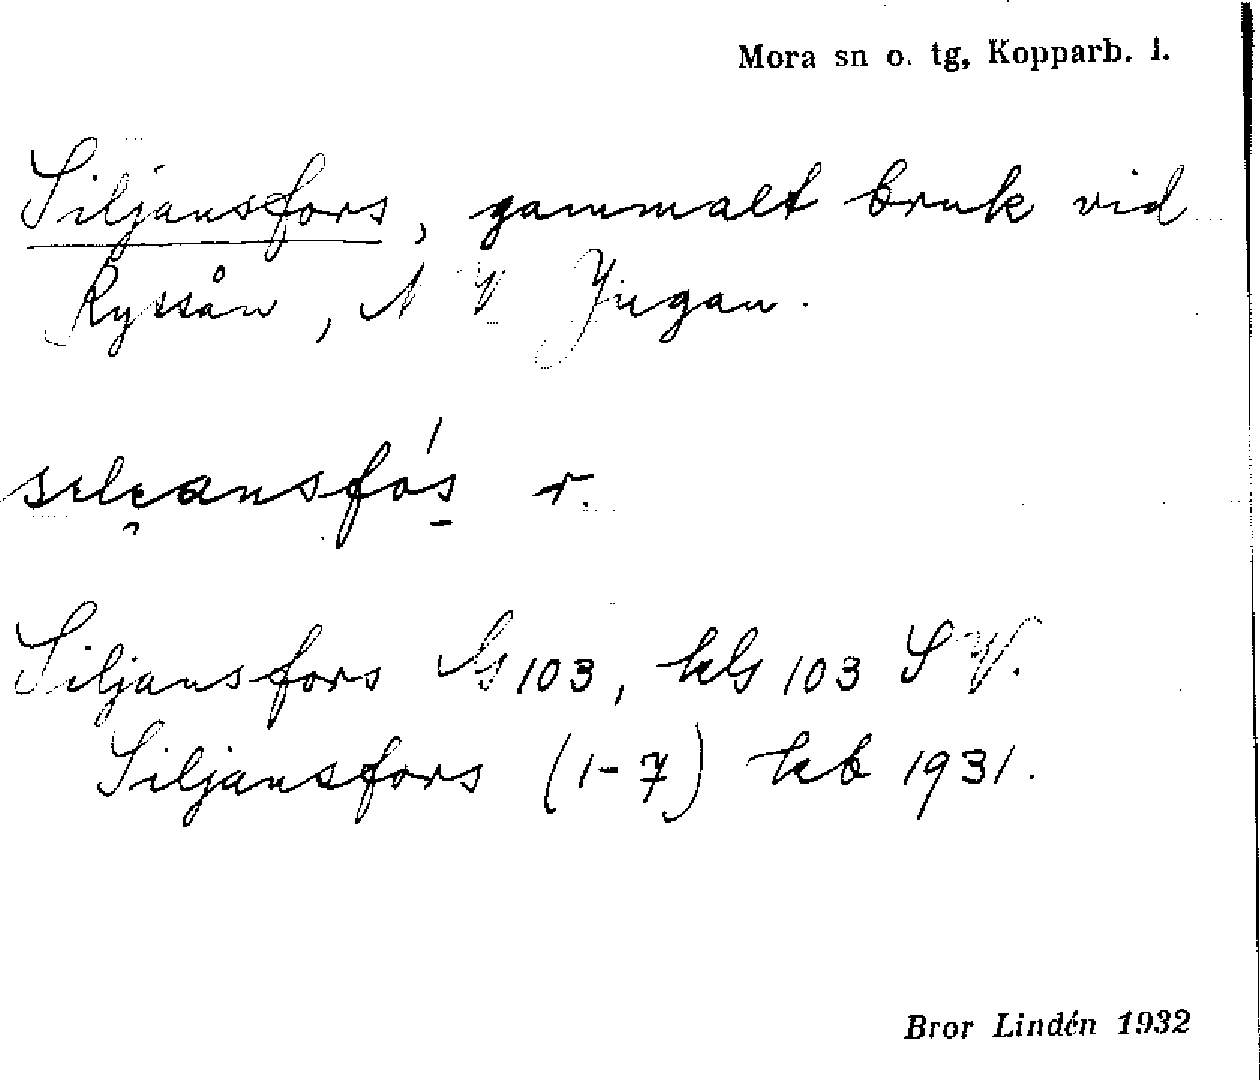 Mora sn o. tg, Kopparb. l.
Siljansfors, gammalt bruk vid
Ryssån, N V Jugan.
r.
Siljansfors 103, kls 103 S V.
Siljansfors (1-7) kb 1931.
Bror Lindén 1932